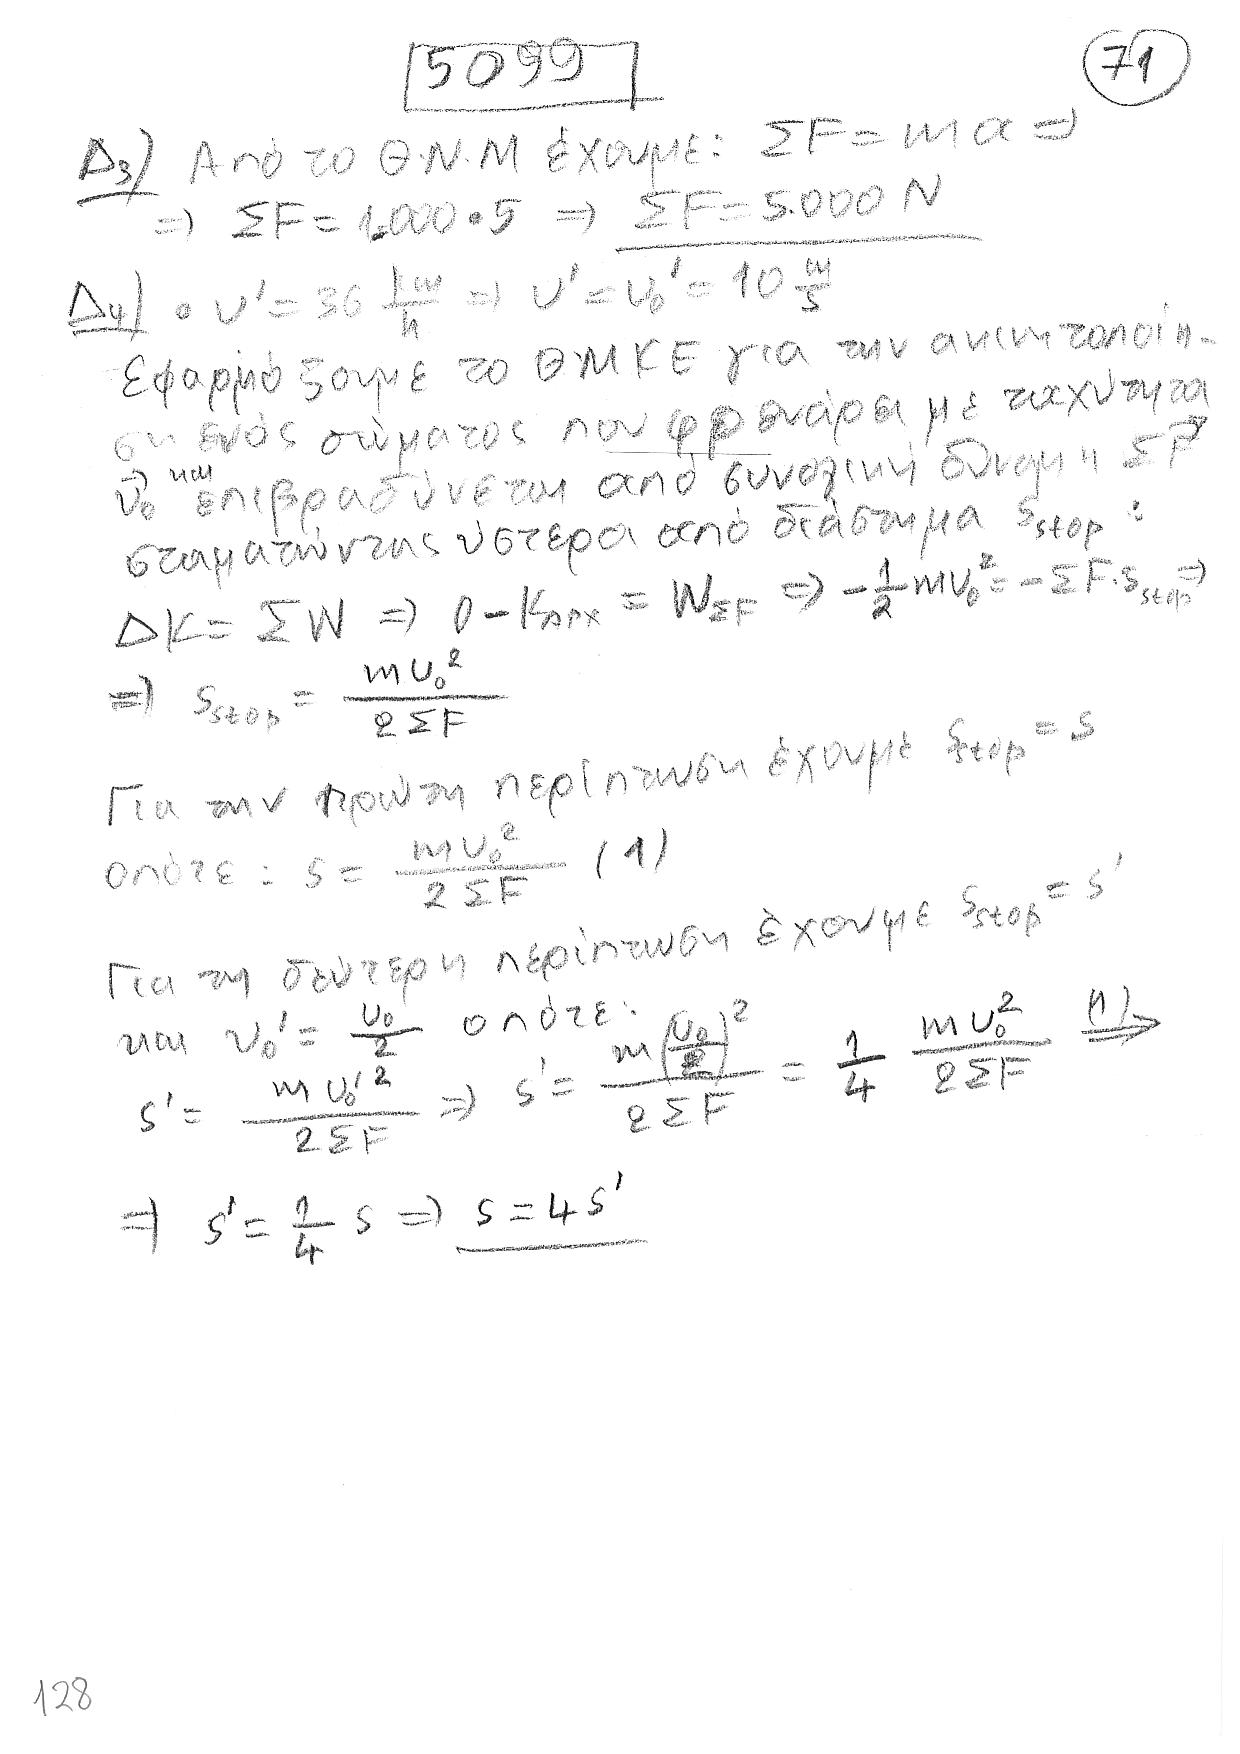 5099
71
Δ3) Από το Θ.Ν.Μ έχουμε: ΣF = mα ⇒
⇒ ΣF = 1.000 • 5 ⇒ ΣF = 5.000 N
Δ4) • υ' = 36 km/h ⇒ υ' = υ₀' = 10 m/s
Εφαρμόζουμε το ΘΜΚΕ για την ακινητοποίη-
ση ενός σώματος που φρενάρει με ταχύτητα
υ₀ και επιβραδύνεται από συνολική δύναμη ΣF
σταματώντας ύστερα από διάστημα s_stop :
ΔK = ΣW ⇒ 0 - K_ΑΡΧ = W_ΣF ⇒ -1/2 mυ₀² = -ΣF·s_stop ⇒
⇒ s_stop = mυ₀² / 2ΣF
Για την πρώτη περίπτωση έχουμε s_stop = s
οπότε : s = mυ₀² / 2ΣF (1)
Για τη δεύτερη περίπτωση έχουμε s_stop = s'
και υ₀' = υ₀/2 οπότε:
s' = mυ₀'² / 2ΣF ⇒ s' = m(υ₀/2)² / 2ΣF = 1/4 mυ₀² / 2ΣF (1)⇒
⇒ s' = 1/4 s ⇒ s = 4s'
128